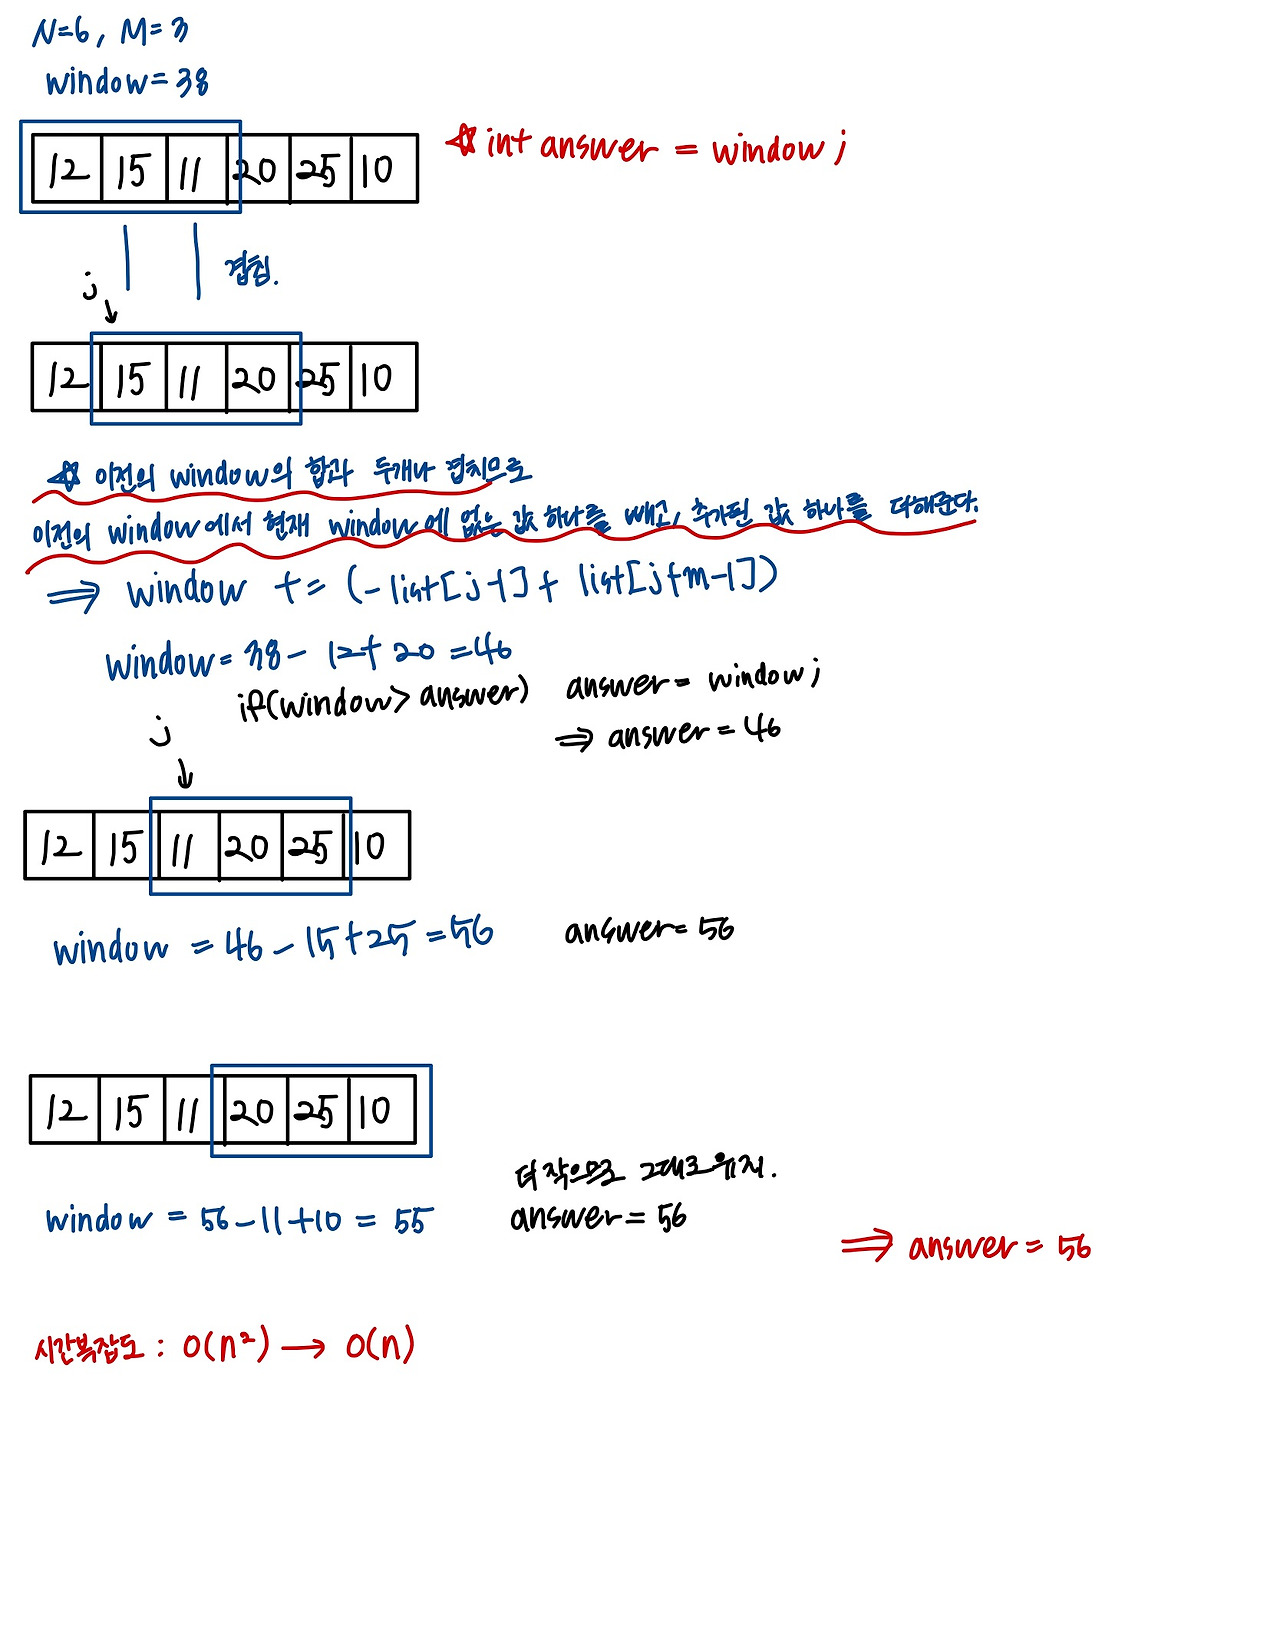 N=6, M=3
window=38
12 15 11 20 25 10
☆ int answer = window;
겹침.
j
12 15 11 20 25 10
☆ 이전의 window의 합과 두개나 겹치므로
이전의 window에서 현재 window에 없는 값 하나를 빼고, 추가된 값 하나를 더해준다.
⇒ window += (-list[j-1] + list[j+m-1])
window = 38 - 12 + 20 = 46
if(window > answer) answer = window;
⇒ answer = 46
j
12 15 11 20 25 10
window = 46 - 15 + 25 = 56 answer = 56
12 15 11 20 25 10
더 작으므로 그대로 유지.
window = 56 - 11 + 10 = 55 answer = 56
⇒ answer = 56
시간복잡도 : O(n²) → O(n)